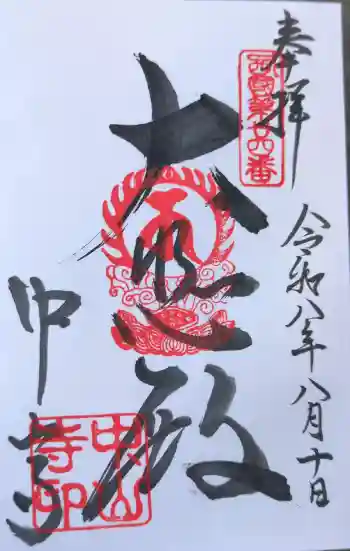 奉拝
西國第廿四番
令和八年八月十日
大悲殿
中山寺
中山寺印